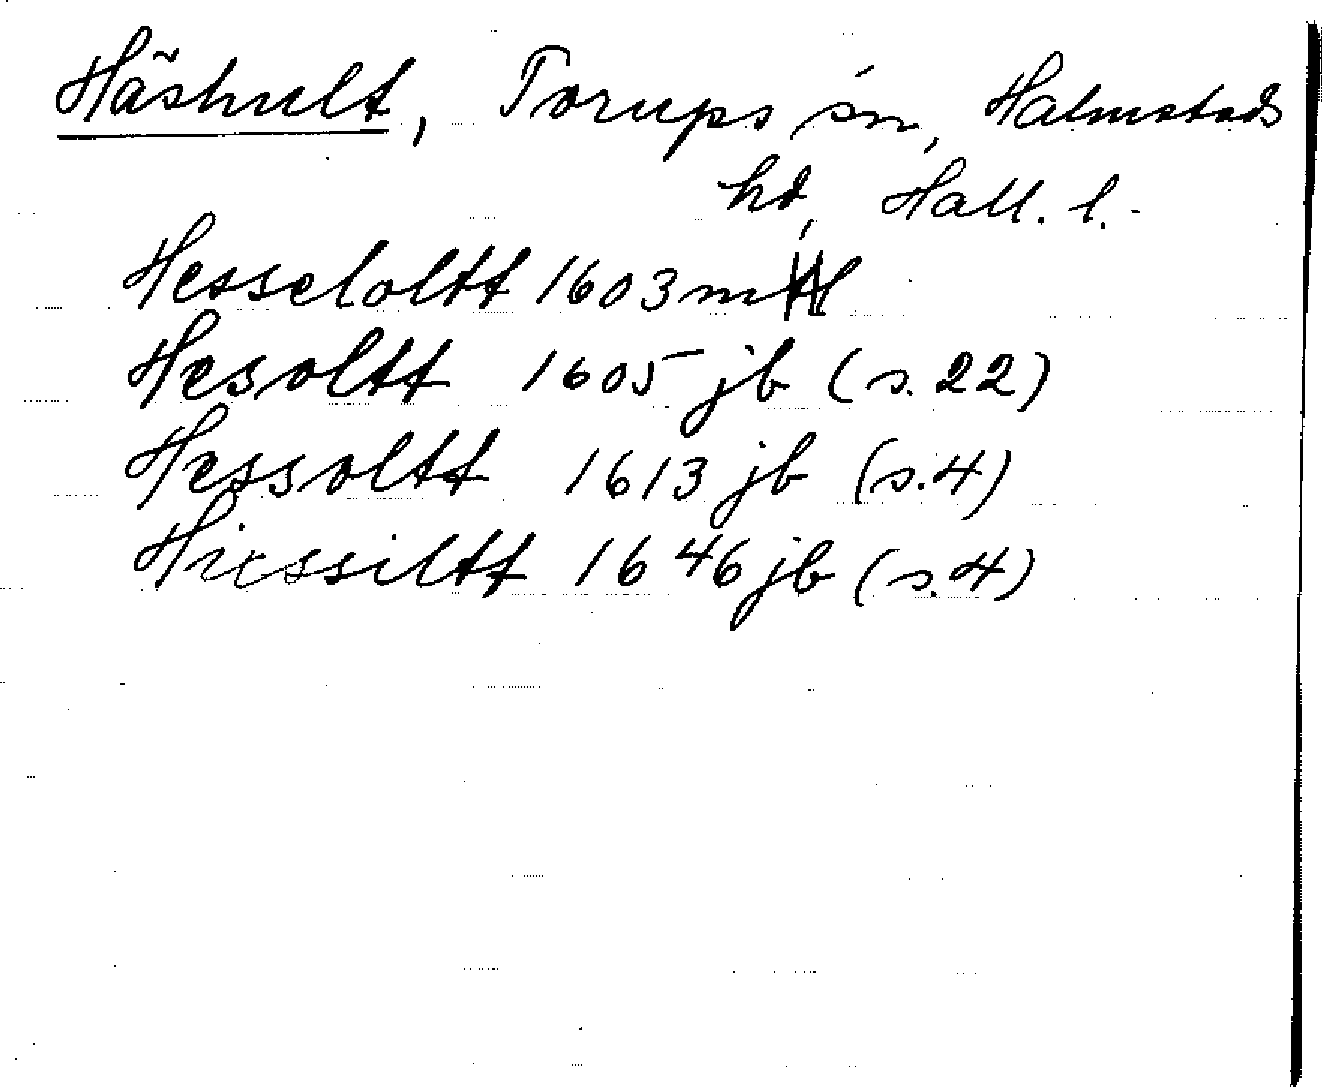 Häshult, Torups sn, Halmstads
hd, Hall. l.
Hesseloltt 1603 ml
Hesoltt 1605 jb (s. 22)
Hessoltt 1613 jb (s. 4)
Hiessiltt 1646 jb (s. 4)